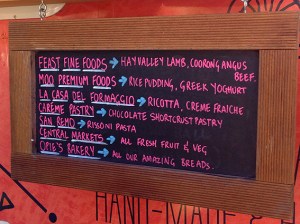 FEAST FINE FOODS → HAY VALLEY LAMB, COORONG ANGUS BEEF.
MOO PREMIUM FOODS → RICE PUDDING, GREEK YOGHURT
LA CASA DEL FORMAGGIO → RICOTTA, CREME FRAICHE
CARÊME PASTRY → CHOCOLATE SHORTCRUST PASTRY
SAN REMO → RISONI PASTA
CENTRAL MARKETS → ALL FRESH FRUIT & VEG
OPIE'S BAKERY → ALL OUR AMAZING BREADS.
HAND-MADE